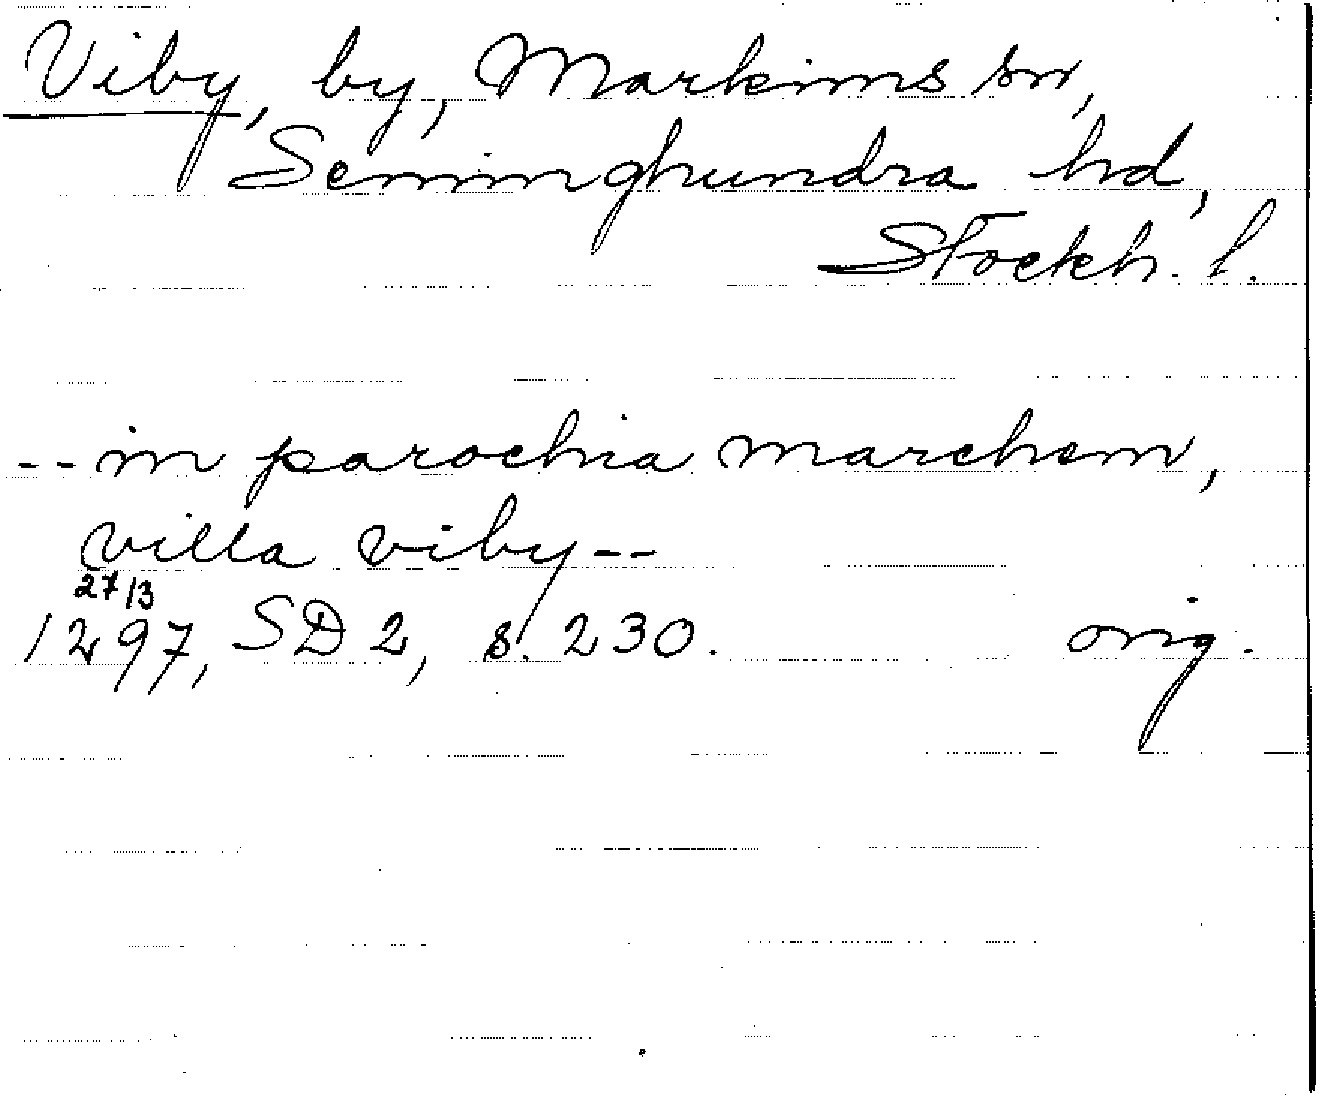 Viby, by, Markims sn,
Seminghundra hd,
Stockh. l.
-- in parochia marchem,
villa viby --
27/3
1297, SD 2, s. 230. orig.